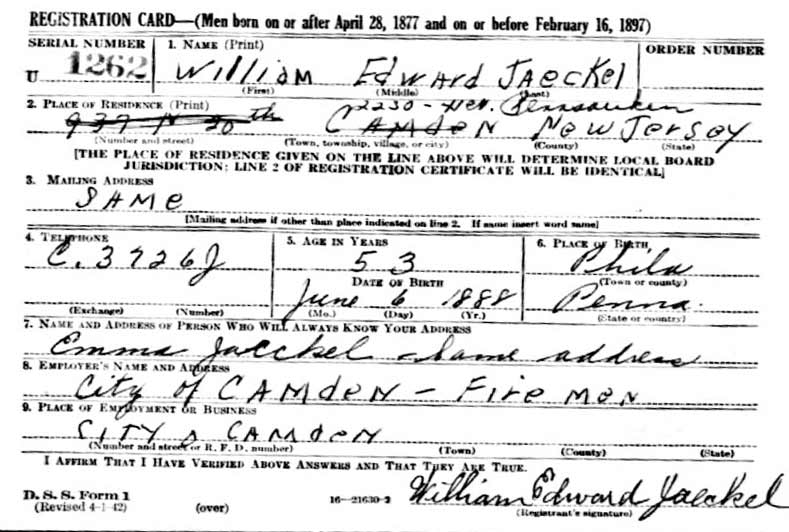 REGISTRATION CARD—(Men born on or after April 28, 1877 and on or before February 16, 1897)
SERIAL NUMBER 1. NAME (Print) ORDER NUMBER
U 1262 William Edward Jaeckel
(First) (Middle) (Last)
2. PLACE OF RESIDENCE (Print) 2230 - Pennsauken
937 N 20th CAMden New Jersey
(Number and street) (Town, township, village, or city) (County) (State)
[THE PLACE OF RESIDENCE GIVEN ON THE LINE ABOVE WILL DETERMINE LOCAL BOARD
JURISDICTION; LINE 2 OF REGISTRATION CERTIFICATE WILL BE IDENTICAL]
3. MAILING ADDRESS
SAMe
[Mailing address if other than place indicated on line 2. If same insert word same]
4. TELEPHONE 5. AGE IN YEARS 6. PLACE OF BIRTH
C. 3726J 53 Phila
DATE OF BIRTH (Town or county)
June 6 1888 Penna.
(Exchange) (Number) (Mo.) (Day) (Yr.) (State or country)
7. NAME AND ADDRESS OF PERSON WHO WILL ALWAYS KNOW YOUR ADDRESS
Emma Jaeckel same address
8. EMPLOYER'S NAME AND ADDRESS
City of CAMden - Fire Men
9. PLACE OF EMPLOYMENT OR BUSINESS
CITY CAMden
(Number and street or R. F. D. number) (Town) (County) (State)
I AFFIRM THAT I HAVE VERIFIED ABOVE ANSWERS AND THAT THEY ARE TRUE.
D. S. S. Form 1 William Edward Jaeckel
(Revised 4-1-42) (over) 16—21630-2 (Registrant's signature)